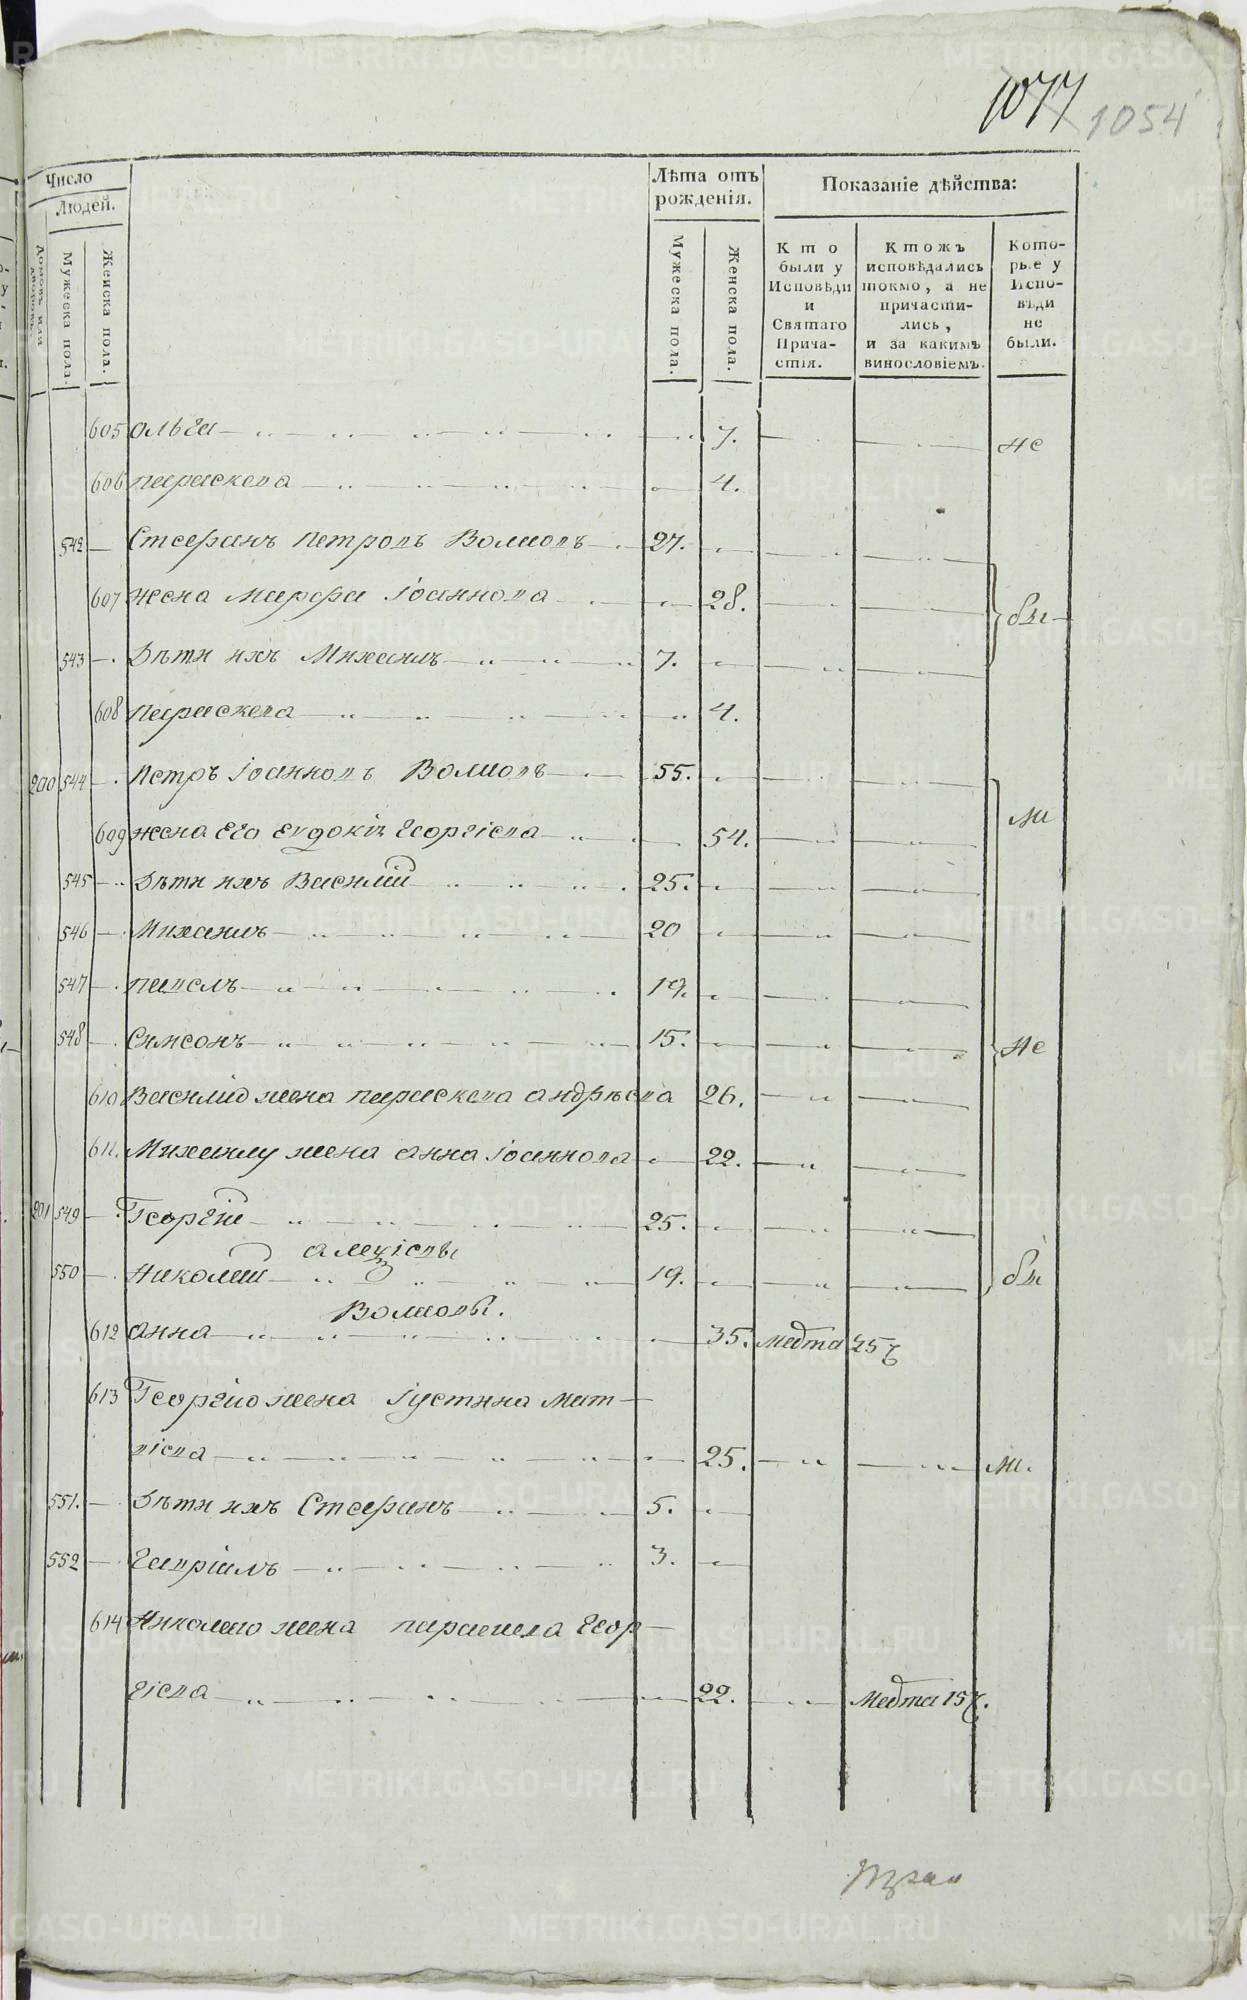 1077 1054
Число
Людей.
Домовъ или дворовъ.
Мужеска пола.
Женска пола.
Лѣта отъ рожденія.
Мужеска пола.
Женска пола.
Показаніе дѣйства:
Кто были у Исповѣди и Святаго Причастія.
Ктожъ исповѣдались токмо, а не причастились, и за какимъ винословіемъ.
Которые у Исповѣди не были.
605 Ольга 7. не
606 параскева 4.
542 Стефанъ Петровъ Волковъ 27.
607 жена Марфа Іоаннова 28. бы
543 Дѣти ихъ Михаилъ 7.
608 параскева 4.
200 544 Петръ Іоанновъ Волковъ 55.
609 жена его Евдокія Георгіева 54. ли
545 Дѣти ихъ Василій 25.
546 Михаилъ 20
547 павелъ 19.
548 Симеонъ 15. не
610 Василію жена параскева андрѣева 26.
611. Михаилу жена анна Іоаннова 22.
201 549 Георгій 25.
алекіевы
550 Николай 19. бы
Волковы.
612 анна 35.
613 Георгію жена Іустина Мат
віева 25. ли.
551. Дѣти ихъ Стефанъ 5.
552 Гавріилъ 3.
614 Николаю жена параскева Геор
гіева 22.
METRIKI.GASO-URAL.RU